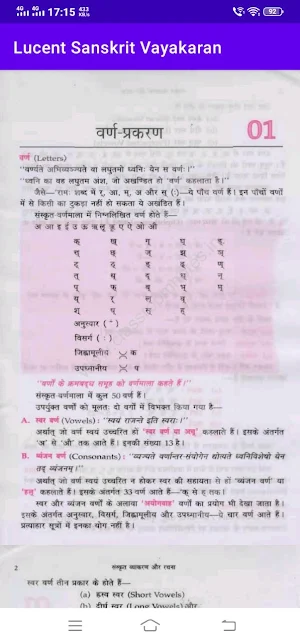 17:15
4G 4G 433 KB/s
92
Lucent Sanskrit Vayakaran
वर्ण-प्रकरण
01
वर्ण (Letters)
"वर्ण्यते अभिव्यज्यते वा लघुतमो ध्वनिः येन स वर्णः।"
"ध्वनि का वह लघुतम अंश, जो अखण्डित हो 'वर्ण' कहलाता है।"
जैसे—'रामः' शब्द में र्, आ, म्, अ और स् (:)—ये पाँच वर्ण हैं। इन पाँचों वर्णों
में से किसी का टुकड़ा नहीं हो सकता ये अखण्डित हैं।
संस्कृत वर्णमाला में निम्नलिखित वर्ण होते हैं—
अ आ इ ई उ ऊ ऋ ॠ ऌ ए ऐ ओ औ
क् ख् ग् घ् ङ्
च् छ् ज् झ् ञ्
ट् ठ् ड् ढ् ण्
त् थ् द् ध् न्
प् फ् ब् भ् म्
य् र् ल् व्
श् ष् स् ह्
अनुस्वार ( ं )
विसर्ग ( : )
जिह्वामूलीय ≍ क
उपध्मानीय ≍ प
"वर्णों के क्रमबद्ध समूह को वर्णमाला कहते हैं।"
संस्कृत-वर्णमाला में कुल 50 वर्ण हैं।
उपर्युक्त वर्णों को मूलतः दो वर्गों में विभक्त किया गया है—
A. स्वर वर्ण (Vowels) : "स्वयं राजन्ते इति स्वराः।"
अर्थात् जो वर्ण स्वयं उच्चरित हों 'स्वर वर्ण या अच्' कहलाते हैं। इसके अंतर्गत
'अ' से 'औ' तक आते हैं। इनकी संख्या 13 है।
B. व्यंजन वर्ण (Consonants) : "व्यज्यते वर्णान्तर-संयोगेन द्योत्यते ध्वनिविशेषो येन
तद् व्यंजनम्।"
अर्थात् जो वर्ण स्वयं उच्चरित न होकर स्वर की सहायता से हों 'व्यंजन वर्ण' या
'हल्' कहलाते हैं। इसके अंतर्गत 33 वर्ण आते हैं—'क् से ह् तक।
स्वर और व्यंजन वर्णों के अलावा 'अयोगवाह' वर्णों का प्रयोग भी देखा जाता है।
इसके अंतर्गत अनुस्वार, विसर्ग, जिह्वामूलीय और उपध्मानीय—ये चार वर्ण आते हैं।
प्रत्याहार सूत्रों में इनका योग नहीं है।
2 संस्कृत व्याकरण और रचना
स्वर वर्ण तीन प्रकार के होते हैं—
(a) ह्रस्व स्वर (Short Vowels)
(b) दीर्घ स्वर (Long Vowels) और